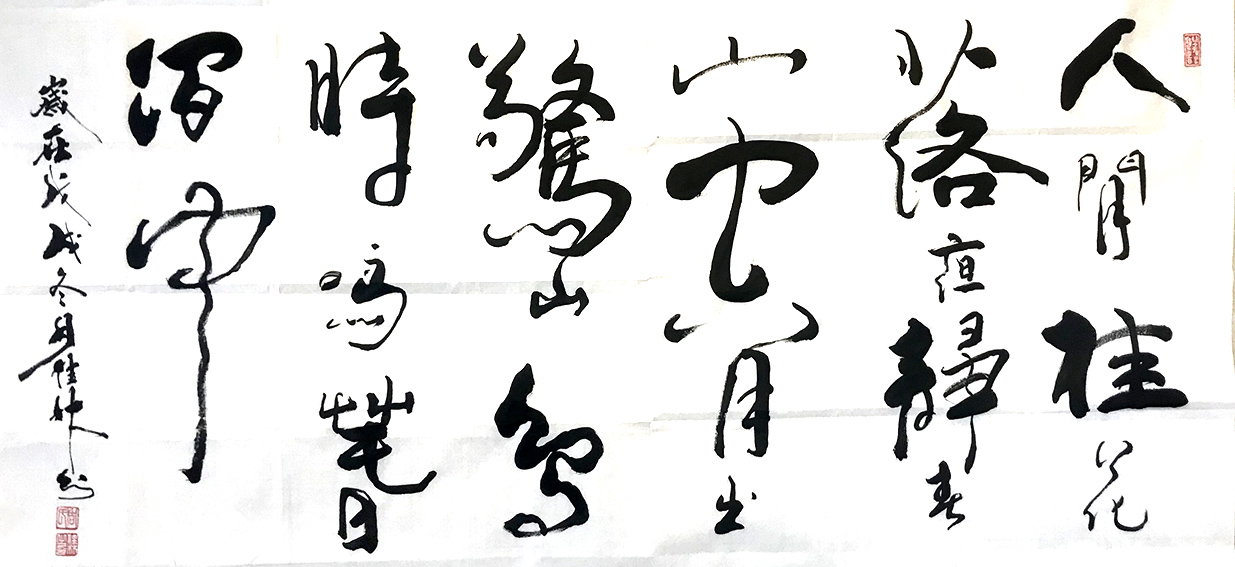 人閒桂花
落夜靜春
山空月出
驚山鳥
時鳴萅
澗中
歲在戊戌冬月